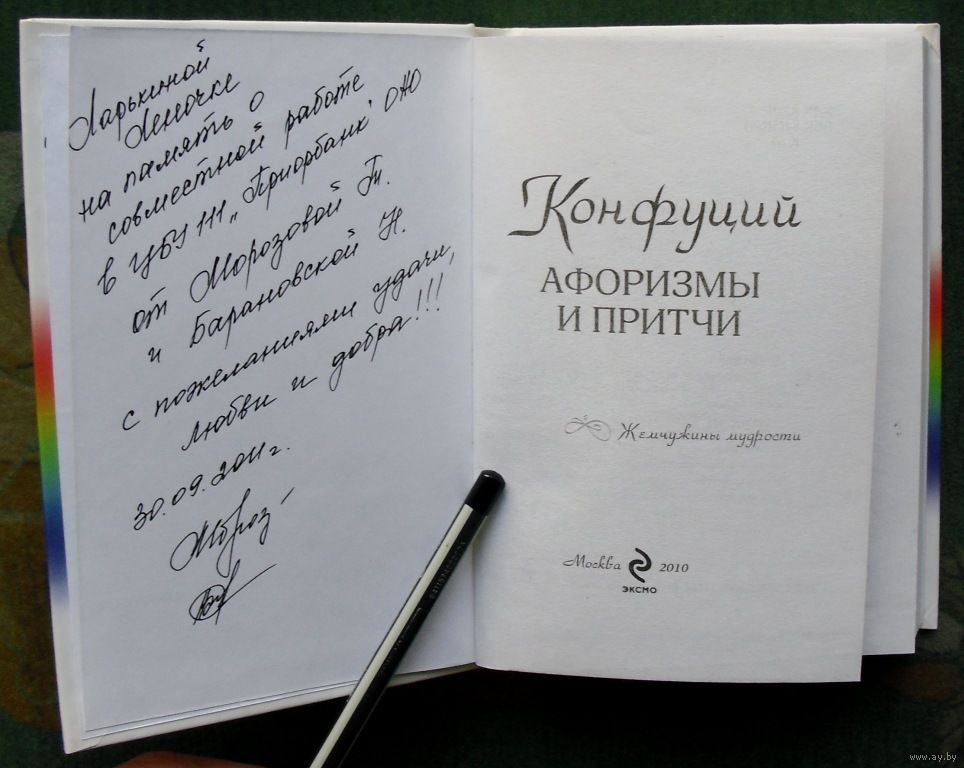 Ларькиной
Леночке
на память о
совместной работе
в ЦБУ 111 „Приорбанк" ОАО
от Морозовой Т.
и Барановской Н.
с пожеланиями удачи,
любви и добра!!!
30.09.2011г.
Мороз
Конфуций
АФОРИЗМЫ
И ПРИТЧИ
Жемчужины мудрости
Москва 2010
ЭКСМО
www.ay.by